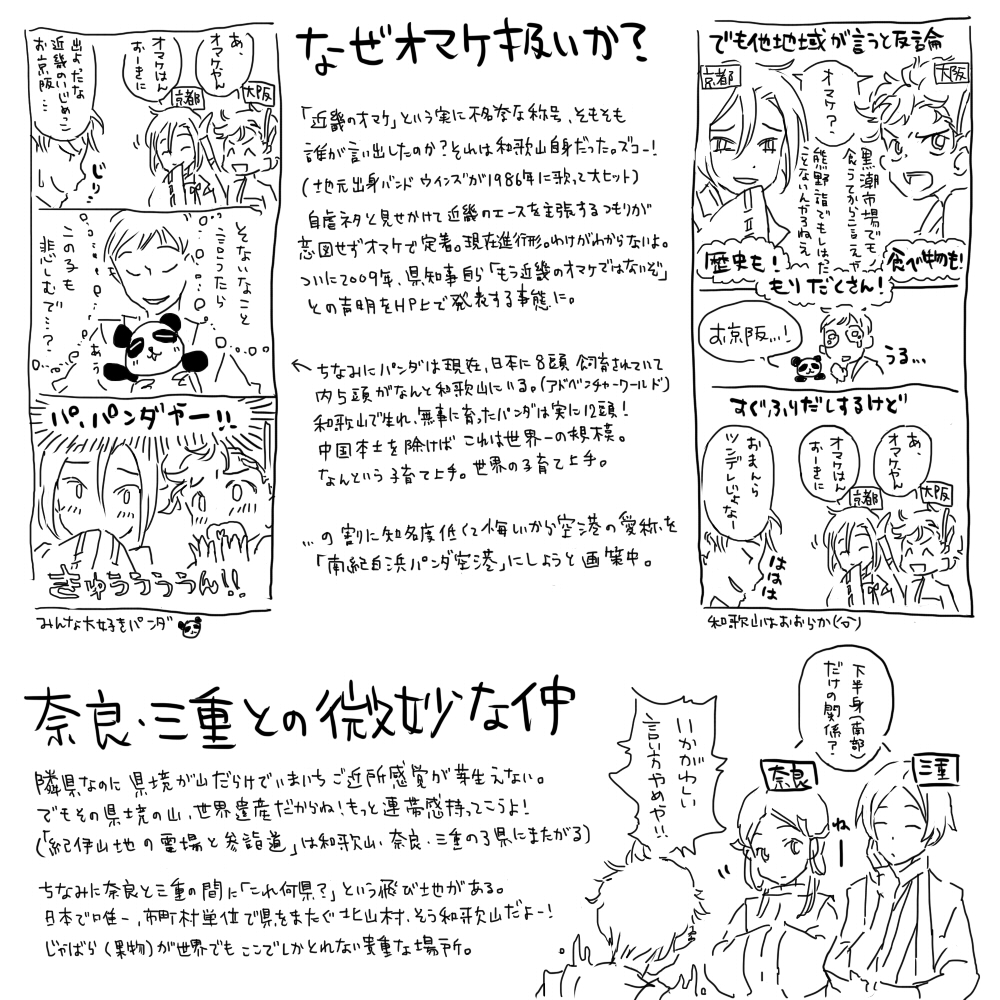 なぜオマケ扱いか？
「近畿のオマケ」という実に不名誉な称号、そもそも
誰が言い出したのか？それは和歌山自身だった。ズコー！
（地元出身バンド ウインズが1986年に歌って大ヒット）
自虐ネタと見せかけて近畿のエースを主張するつもりが
意図せずオマケで定着。現在進行形。わけがわからないよ。
ついに2009年、県知事自ら「もう近畿のオマケではないぞ」
との声明をHP上で発表する事態に。
←ちなみにパンダは現在、日本に8頭飼育されていて
内5頭がなんと和歌山にいる。（アドベンチャーワールド）
和歌山で生れ、無事に育ったパンダは実に12頭！
中国本土を除けばこれは世界一の規模。
なんという子育て上手。世界の子育て上手。
…の割に知名度低くて悔いから空港の愛称を
「南紀白浜パンダ空港」にしようと画策中。
あ、
オマケやん
大阪
オマケはん
おーきに
京都
出よったな
近畿のいじめっこ
お京阪…
じり…
そないなこと
言うたら
このろも
悲しむで…？
パ、パンダやー！！
きゅうぅぅぅん！！
みんな大好きパンダ
でも他地域が言うと反論
大阪
京都
オマケ？
黒潮市場でモノ
食うてから言えや
熊野詣でもしはった
ことないんかねえ
歴史も！
食べ物も！
もりだくさん！
お京阪…！
うる…
すぐふりだしするけど
あ、
オマケやん
大阪
オマケはん
おーきに
京都
おまんら
ツンデレじょなー
ははは
和歌山はおおらか(^o^)
奈良・三重との微妙な仲
隣県なのに県境が山だらけでいまいちご近所感覚が芽生えない。
でもその県境の山、世界遺産だからね！もっと連帯感持ってこうよ！
（「紀伊山地の霊場と参詣道」は和歌山、奈良・三重の3県にまたがる）
ちなみに奈良と三重の間に「これ何県？」という飛び地がある。
日本で唯一、市町村単位で県をまたぐ北山村、そう和歌山だよー！
じゃばら（果物）が世界でもここでしかとれない貴重な場所。
下半身（南部）
だけの関係？
三重
奈良
ねー
いかがわしい
言い方やめや！！